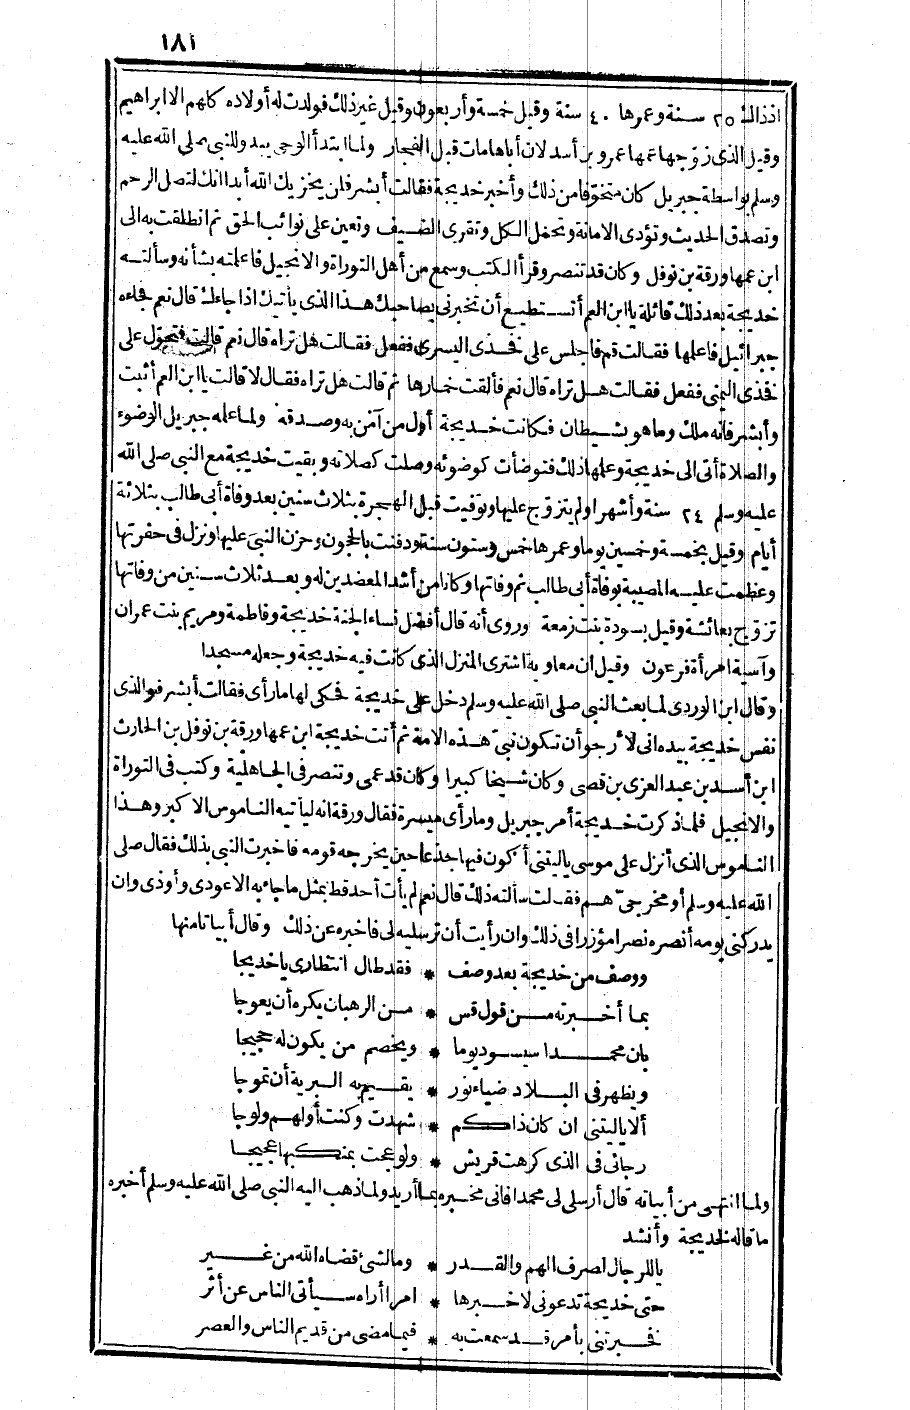 ١٨١
اذذاك ٢٥ سنة وعمرها ٤٠ سنة وقيل خمسة وأربعون وقيل غير ذلك فولدت له أولاده كلهم الا ابراهيم
وقيل الذى زوّجها عمها عمرو بن أسد لان أباها مات قبل الفجار ولما ابتدأ الوحى يبدو للنبى صلى الله عليه
وسلم بواسطة جبريل كان متخوّفا من ذلك وأخبر خديجة فقالت أبشر فلن يخزيك الله أبدا انك لتصل الرحم
وتصدق الحديث وتؤدى الامانة وتحمل الكل وتقرى الضيف وتعين على نوائب الحق ثم انطلقت به الى
ابن عمها ورقة بن نوفل وكان قد تنصر وقرأ الكتب وسمع من أهل التوراة والانجيل فاعلمته بشأنه وسألته
خديجة بعد ذلك قائلة يا ابن العم أتستطيع أن تخبرنى بصاحبك هذا الذى يأتيك اذا جاءك قال نعم فجاءه
جبرائيل فاعلمها فقالت قم فاجلس على فخذى اليسرى ففعل فقالت هل تراه قال نعم قالت فتحوّل على
فخذى اليمنى ففعل فقالت هل تراه قال نعم فألقت خمارها ثم قالت هل تراه فقال لا قالت يا ابن العم أثبت
وأبشر فانه ملك وما هو بشيطان فكانت خديجة أول من آمن به وصدقه ولما علمه جبريل الوضوء
والصلاة أتى الى خديجة وعلمها ذلك فتوضأت كوضوئه وصلت كصلاته وبقيت خديجة مع النبى صلى الله
عليه وسلم ٢٤ سنة وأشهرا ولم يتزوّج عليها وتوفيت قبل الهجرة بثلاث سنين بعد وفاة أبى طالب بثلاثة
أيام وقيل بخمسة وخمسين يوما وعمرها خمس وستون سنة ودفنت بالحجون وحزن النبى عليها ونزل فى حفرتها
وعظمت عليه المصيبة بوفاة أبى طالب ثم وفاتها وكانا من أشد المعضدين له وبعد ثلاث سنين من وفاتها
تزوّج بعائشة وقيل بسودة بنت زمعة وروى أنه قال أفضل نساء الجنة خديجة وفاطمة ومريم بنت عمران
وآسية امرأة فرعون وقيل ان معاوية اشترى المنزل الذى كانت فيه خديجة وجعله مسجدا
وقال ابن الوردى لما بعث النبى صلى الله عليه وسلم دخل على خديجة فحكى لها ما رأى فقالت أبشر فوالذى
نفس خديجة بيده انى لأرجو أن تكون نبىّ هذه الامة ثم أتت خديجة ابن عمها ورقة بن نوفل بن الحارث
ابن أسد بن عبد العزى بن قصى وكان شيخا كبيرا وكان قد عمى وتنصر فى الجاهلية وكتب فى التوراة
والانجيل فلما ذكرت خديجة أمر جبريل وما رأى ميسرة فقال ورقة انه ليأتيه الناموس الاكبر وهذا
الناموس الذى أنزل على موسى ياليتنى أكون فيها جذعا حين يخرجه قومه فاخبرت النبى بذلك فقال صلى
الله عليه وسلم أو مخرجىّ هم فقلت سألته ذلك قال نعم لم يأت أحد قط بمثل ما جاء به الا عودى وأوذى وان
يدركنى يومه أنصره نصرا مؤزرا فى ذلك وان رأيت أن ترسليه لى فاخبره عن ذلك وقال أبياتا منها
ووصف من خديجة بعد وصف * فقد طال انتظارى يا خديجا
بما أخبرته من قول قس * من الرهبان يكره أن يعوجا
بان محمدا سيسود يوما * ويخصم من يكون له حجيجا
ويظهر فى البلاد ضياء نور * يقيم به البرية أن تموجا
ألا ياليتنى ان كان ذاكم * شهدت وكنت أولهم ولوجا
رجائى فى الذى كرهت قريش * ولو عجت بمكتها عجيجا
ولما انتهى من أبياته قال أرسلى لى محمدا فانى مخبره عما أريد ولما ذهب اليه النبى صلى الله عليه وسلم أخبره
ما قاله لخديجة وأنشد
ياللرجال لصرف الهم والقدر * وما لشئ قضاه الله من غير
حتى خديجة تدعونى لاخبرها * امرا أراه سيأتى الناس عن أثر
فخبرتنى بأمر قد سمعت به * فيما مضى من قديم الناس والعصر